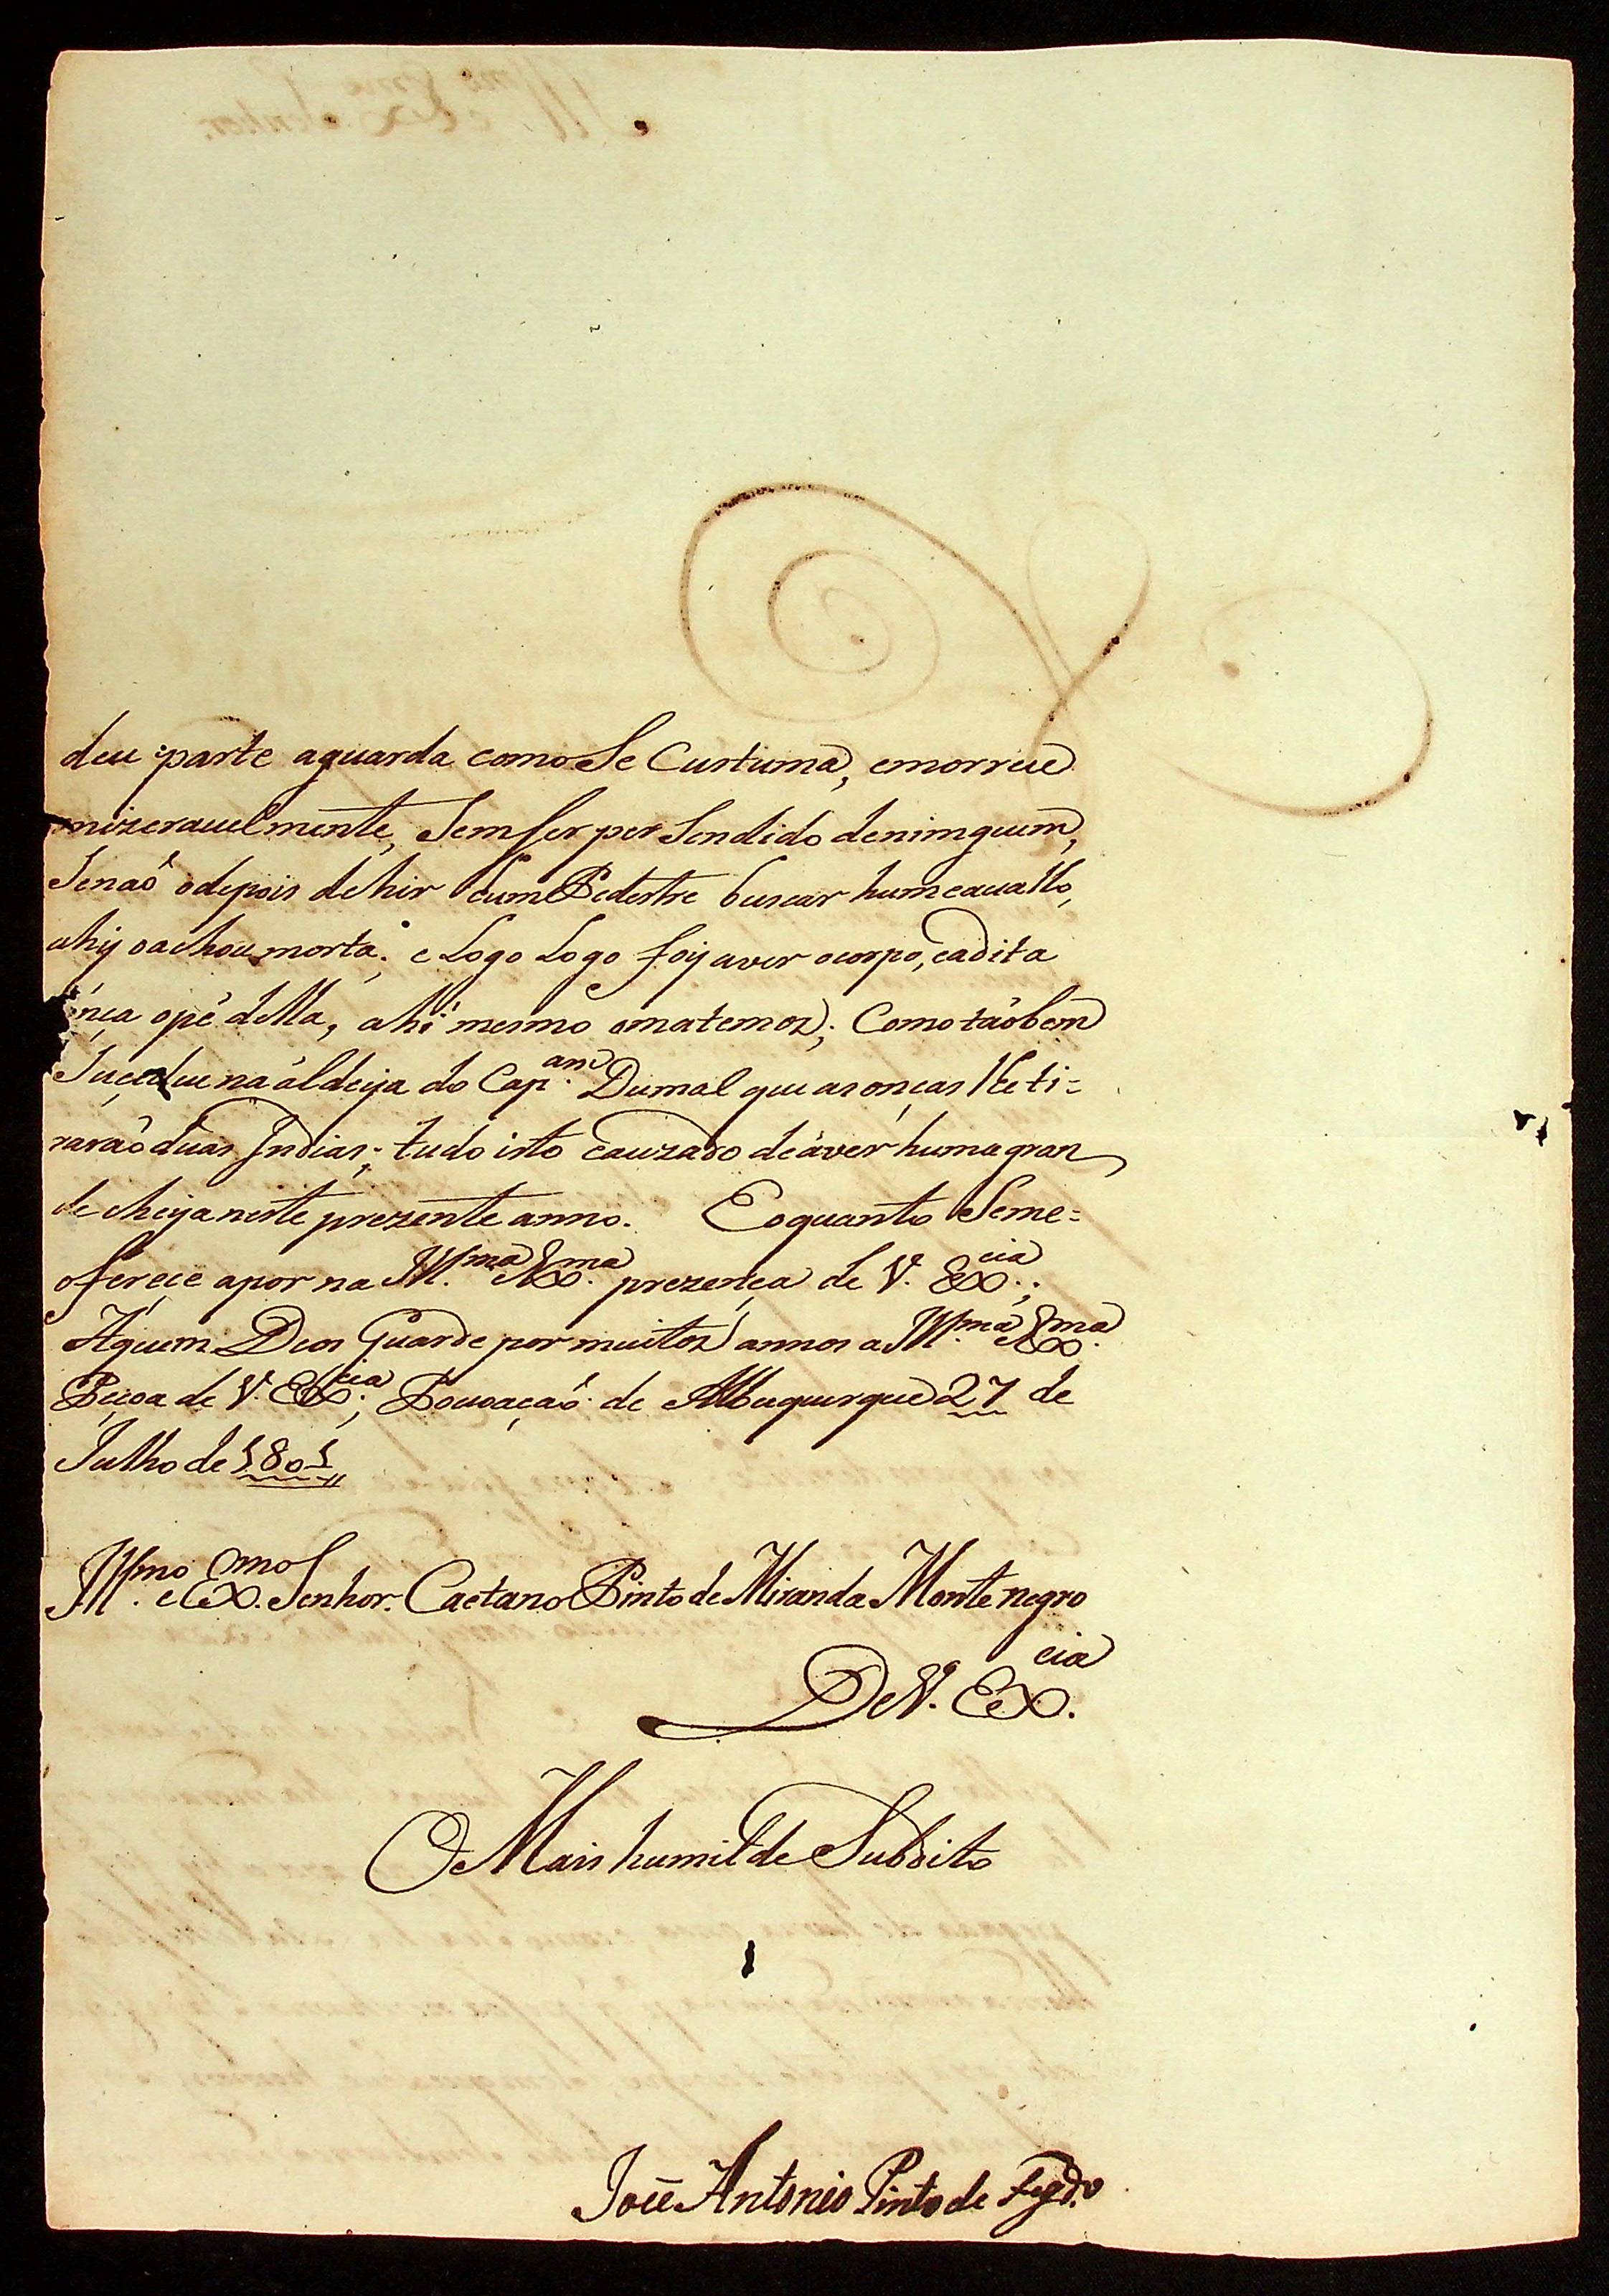 deu parte aguarda como Se Custuma, emorreu
mizerauelmente, Sem Ser per Sendido denimguem,
Senaõ odepois dehir hum Pedestre buscar humcauallo,
ahy oachou morta: e Logo Logo foy aver ocorpo, eadita
onça opé della, ahi mesmo amatemos; Como taõbem
Suçedeu na áldeya do Cap.am Dumal que as onças Reti=
raraõ duas Indias; tudo isto cauzado deáver huma gran
de cheyaneste prezente anno. Eoquanto Seme=
ofereçe apor na Ill.ma e Ex.ma prezença de V. Ex.cia;
Aquem Deos Guarde por muitos annos a Ill.ma e Ex.ma
Peçoa de V. Ex.cia; Povoaçaõ de Albuquerque 27 de
Julho de 1801
Ill.mo e Ex.mo Senhor. Caetano Pinto de Miranda Monte negro
De V. Ex.cia
O Mais humilde Subdito
Joze Antonio Pinto de Figd.o